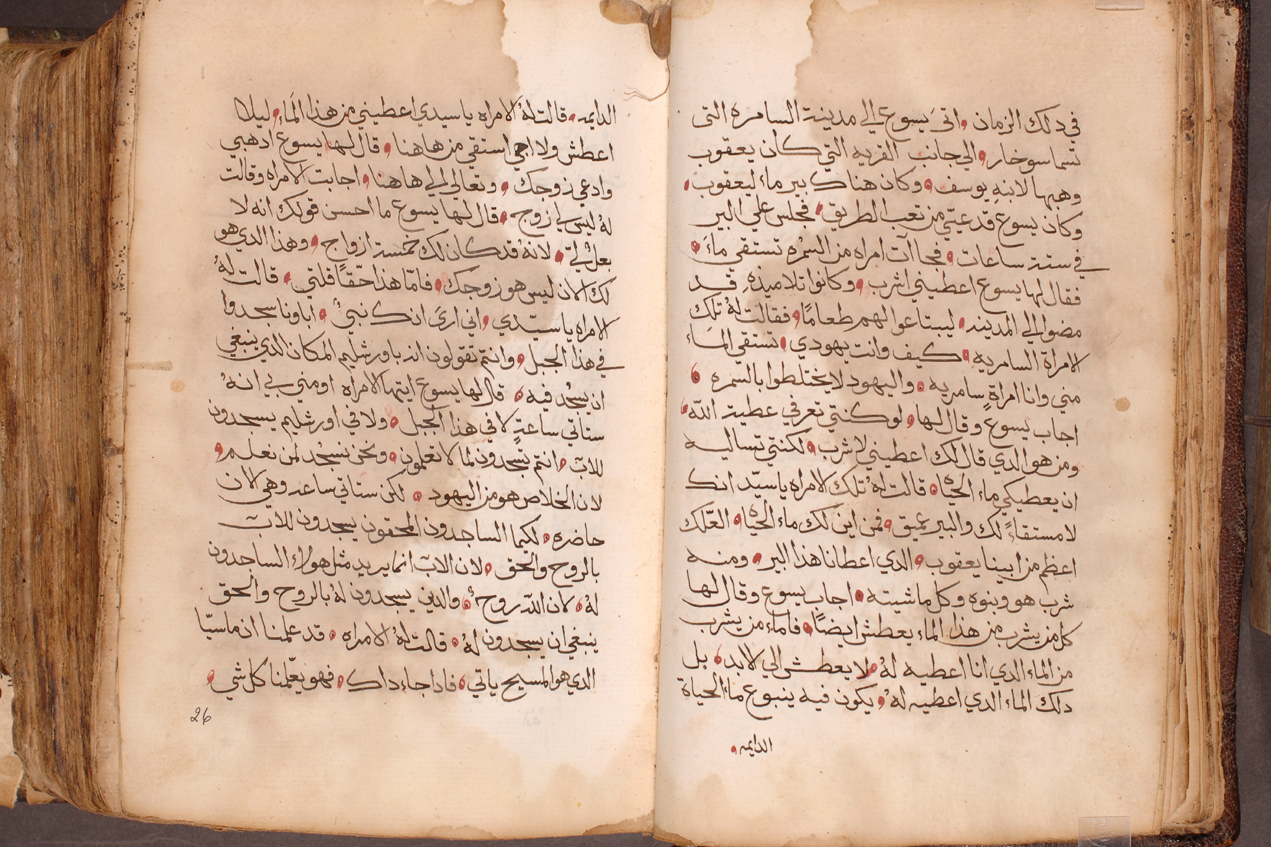 في دلك الزمان اتى يسوع الي مدينة السامره التى
تسما سوخار الي جانب القريه التي كان يعقوب
وهبها لابنه يوسف وكان هناك بير ماء ليعقوب
وكان يسوع قد عيي من تعب الطريق فجلس علي البير
في ستة ساعات فجاات امراه من السمره تستقي ماء
فقال لها يسوع اعطيني اشرب وكانوا تلاميذه قد
مضوا الي المدينه ليبتاعوا لهم طعاما فقالت له تلك
الامراة السامريه كيف وانت يهودي تستقي الماء
مني وانا امراة سامريه واليهود لا يختلطوا بالسمره
اجاب يسوع وقال لها لو كنتي تعرفي عطية الله
ومن هو الدي قال لك اعطيني لاشرب لكنتي تساليه
ان يعطيكي ماء الحياه قالت له تلك الامراه يا سيد انك
لا مستقاء لك والبير عميق فمن اين لك ماء الحياه العلك
اعظم من ابينا يعقوب الدي اعطانا هذا البير ومنه
شرب هو وبنوه وكل ماشيته اجاب يسوع وقال لها
كل من يشرب من هذا الماء يعطش ايضا فاما من يشرب
من الماء الدي انا اعطيه له لا يعطش الي الابد بل
دلك الماء الدي اعطيه له يكون فيه ينبوع ماء الحياة
الدايمه
الدايمه قالت له الامراه يا سيدي اعطيني من هذا الماء ليلا
اعطش ولا اجي استقي من هاهنا قال لها يسوع ادهبي
وادعي زوجك وتعالي الي هاهنا اجابت الامراه وقالت
له ليس لي زوج قال لها يسوع ما احسن قولك انه لا
بعل لي لانه قد كان لك خمسة ازواج وهذا الدي هو
لك الان ليس هو زوجك فاما هذا حقا قلتي قالت له
الامراه يا سيدي اني ارى انك نبي اباونا سجدوا
في هذا الجبل وانتم تقولون انه باورشليم المكان الدي ينبغي
ان يسجد فيه قال لها يسوع ايتها الامراه اومني بي انه
ستاتي ساعة لا في هذا الجبل ولا في اورشليم يسجدون
للاب انتم تسجدون لما لا تعلمون ونحن نسجد لمن نعلم
لان الخلاص هو من اليهود لكن ستاتي ساعه وهي الان
حاضره لكيما الساجدون المحقون يسجدون للاب
بالروح والحق لان الاب انما يريد مثل هولاء الساجدون
له لان الله روح والدين يسجدون له بالروح والحق
ينبغي ان يسجدون له قالت له الامراه قد علمنا ان ماسيا
الدي هو المسيح ياتي فادا جاء داك فهو يعلمنا كل شي
26